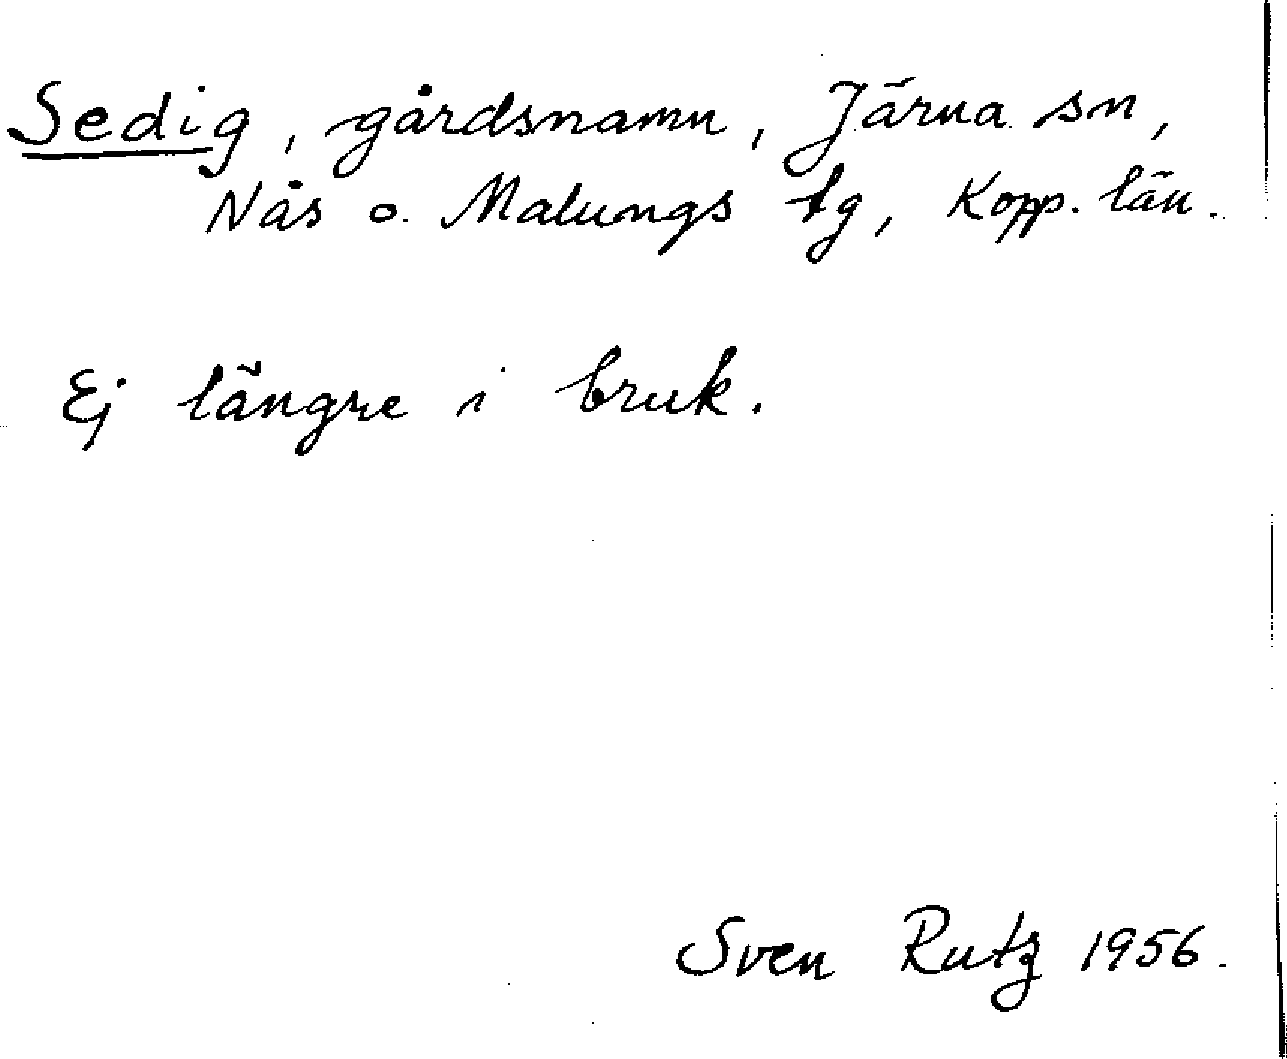 Sedig, gårdsnamn, Järna sn,
Nås o. Malungs tg, Kopp. län.
Ej längre i bruk.
Sven Rutz 1956.